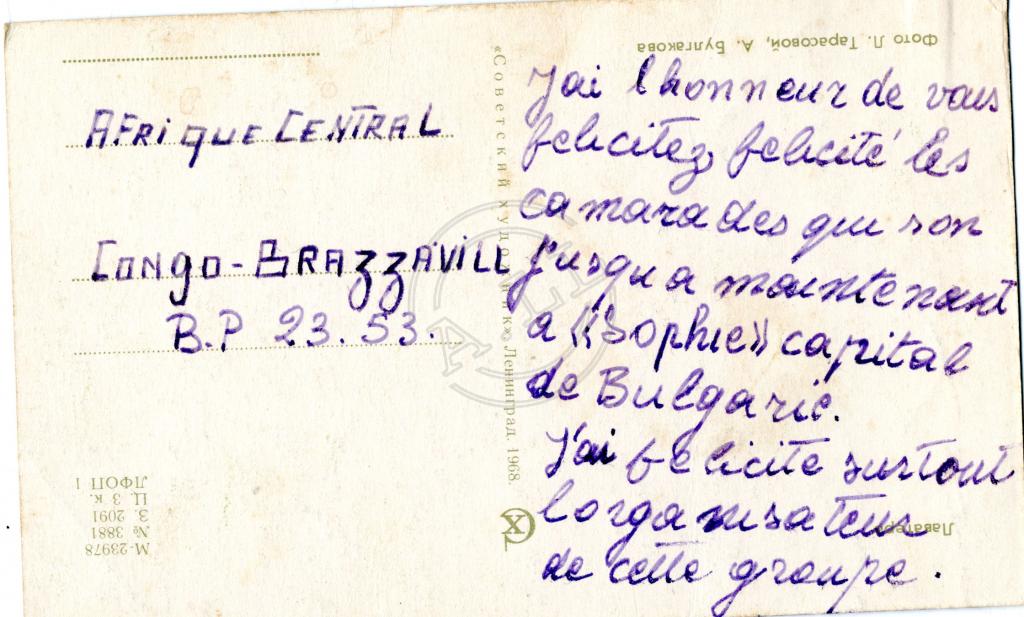 AFRIQUE CENTRAL
CONGO-BRAZZAVILL
B.P 23.53.
J'ai lhonneur de vous
felicitez, felicité les
camarades qui son
jusqu a maintenant
a «Sophie» capital
de Bulgarie.
J'ai felicite surtout
lorganisateur
de cette groupe.
«Советский художник» Ленинград. 1968.
Фото Л. Тарасовой, А. Булгакова
М-23978
№ 3881
З. 2091
Ц. 3 к.
ЛФОП 1